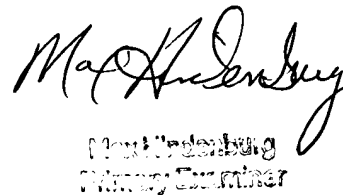 Max Hindenburg
Max Hindenburg
Primary Examiner